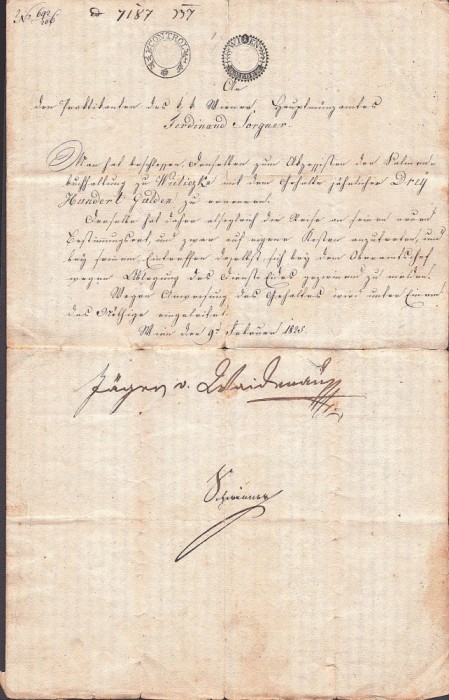 7187
CONTROLL
WIEN
An
den Praktikanten des k. k. Wiener Hauptmünzamtes
Ferdinand Sorguer.
Man hat beschlossen, denselben zum Akzessisten der Salinen
buchhaltung zu Wieliczka mit dem Gehalte jährlicher Drey
Hundert Gulden zu ernennen.
Derselbe hat daher alsogleich die Reise an seinen neuen
Bestimmungsort, und zwar auf eigene Kosten anzutreten, und
bey seinem Eintreffen daselbst sich bey dem Oberamts
wegen Ablegung des Dienst Eides geziemend zu melden.
Wegen Anweisung des Gehaltes wird unter Einem
das Nöthige eingeleitet.
Wien den 9. Februar 1825.
Jäger v. Waidenau